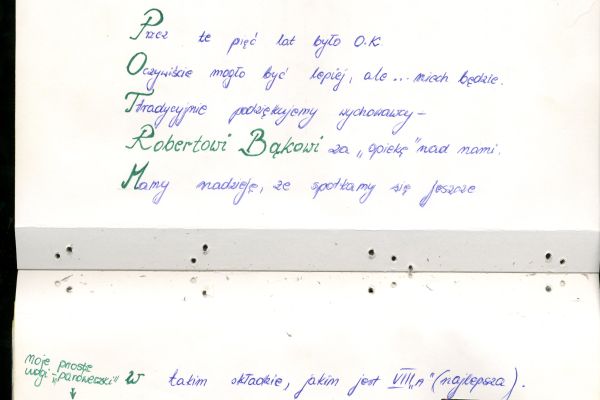 Przez te pięć lat było O.K
Oczywiście mogło być lepiej, ale... niech będzie.
Ttradycyjnie podziękujemy wychowawcy –
Robertowi Bąkowi za „opiekę" nad nami.
Mamy nadzieję, że spotkamy się jeszcze
Moje proste
włogi - „paróweczki"
W takim składzie, jakim jest VIII„A" (najlepsza).